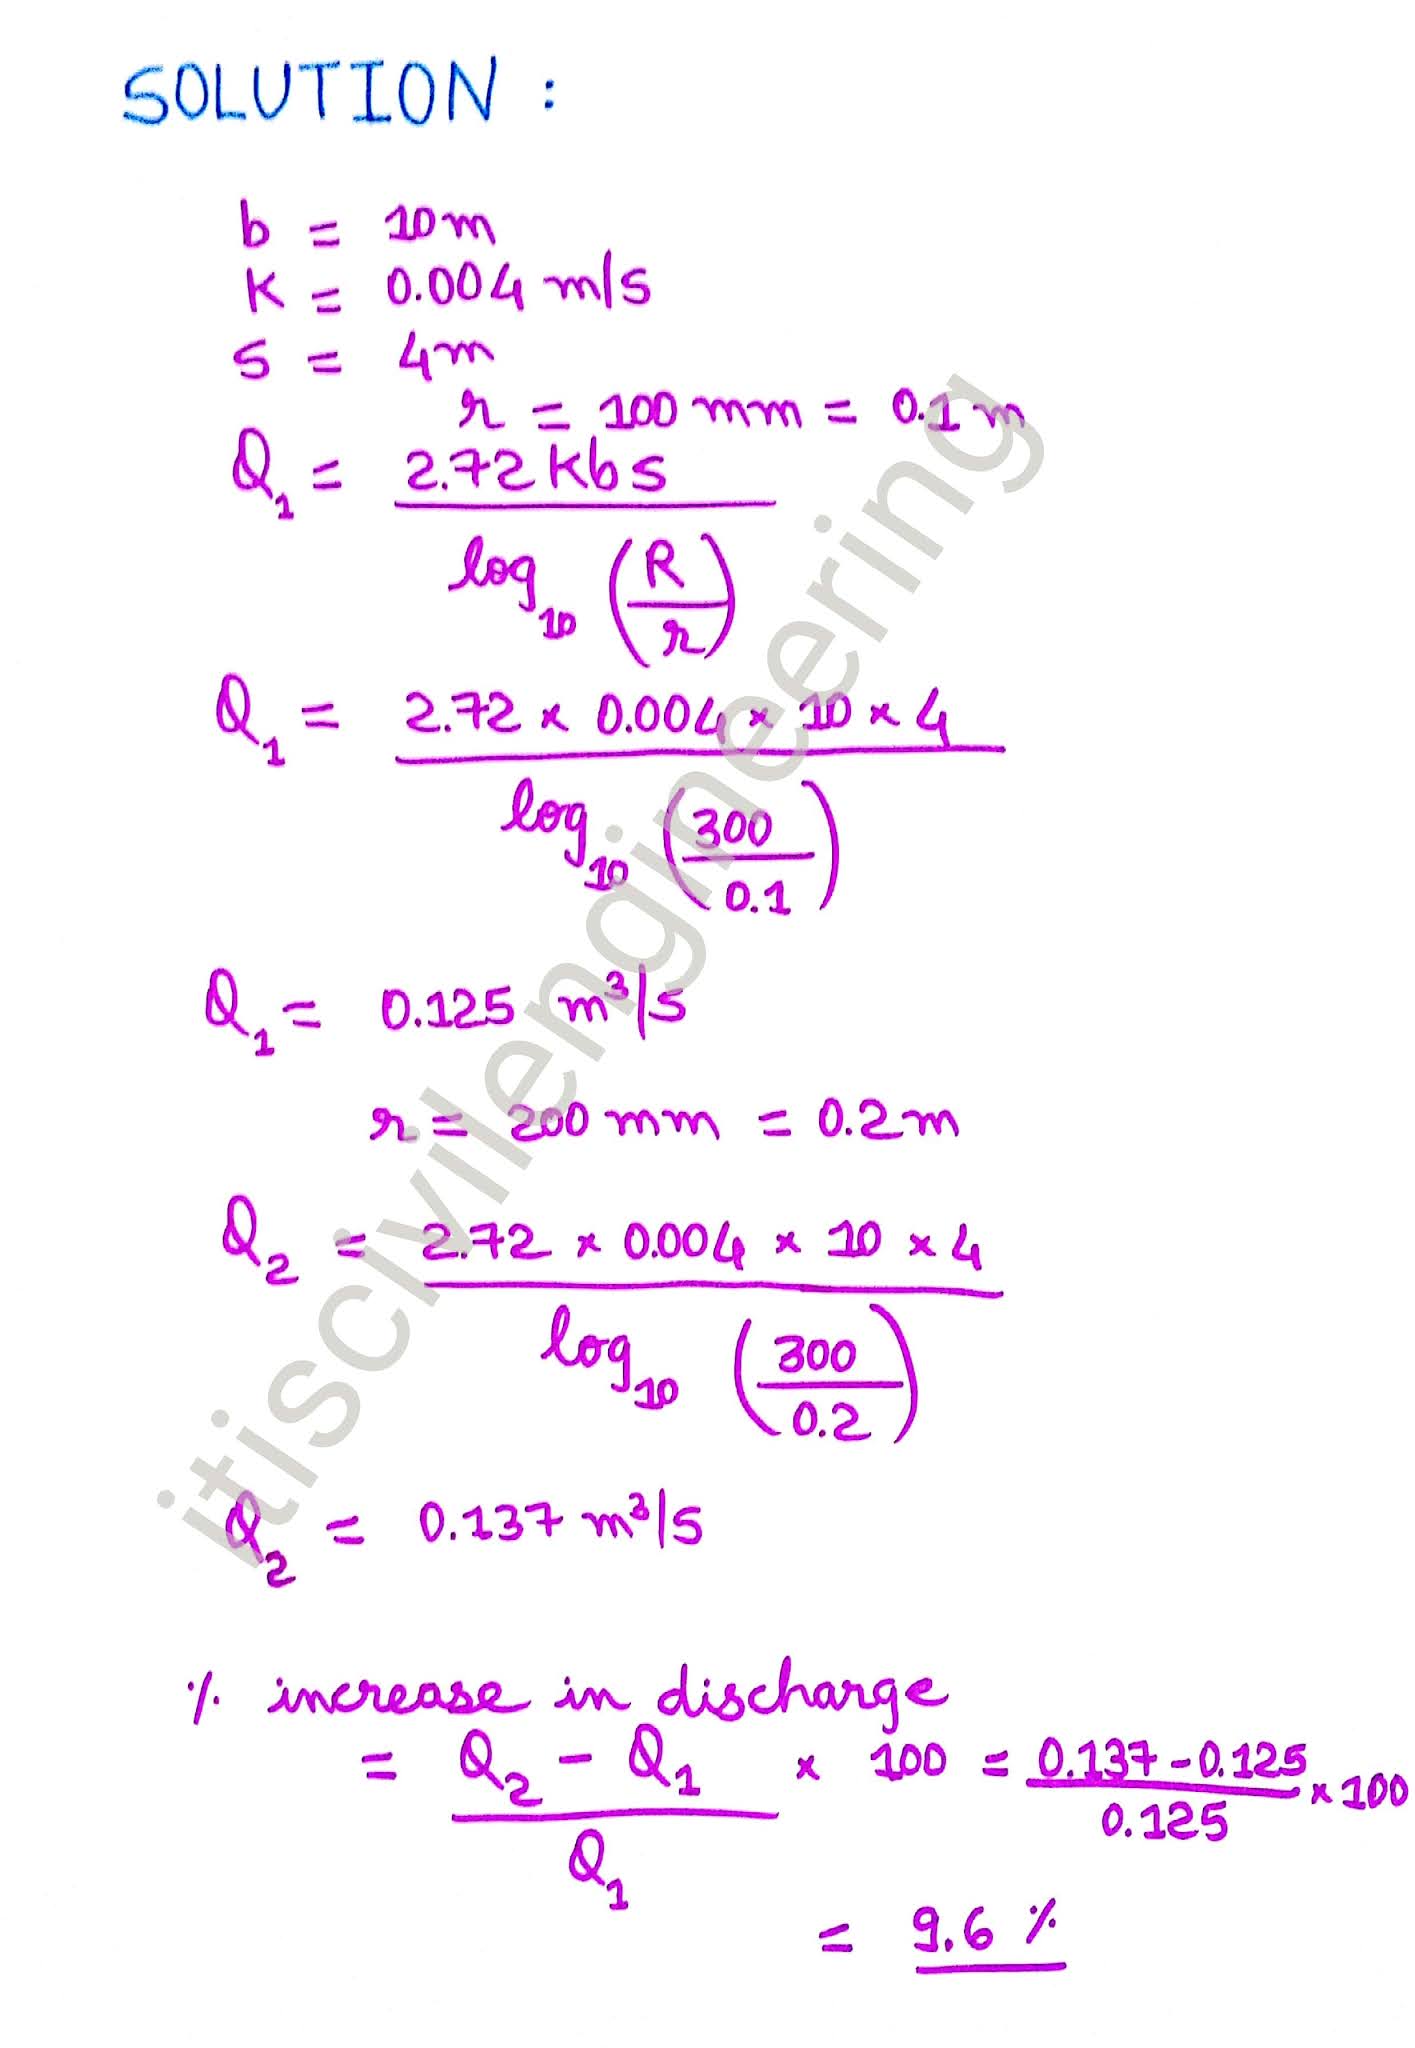 SOLUTION :
b = 10m
K = 0.004 m/s
s = 4m
r = 100 mm = 0.1 m
Q₁ = 2.72 K b s
log₁₀ (R/r)
Q₁ = 2.72 × 0.004 × 10 × 4
log₁₀ (300/0.1)
Q₁ = 0.125 m³/s
r = 200 mm = 0.2 m
Q₂ = 2.72 × 0.004 × 10 × 4
log₁₀ (300/0.2)
Q₂ = 0.137 m³/s
% increase in discharge
= Q₂ - Q₁ / Q₁ × 100 = 0.137 - 0.125 / 0.125 × 100
= 9.6 %
itiscivilengineering